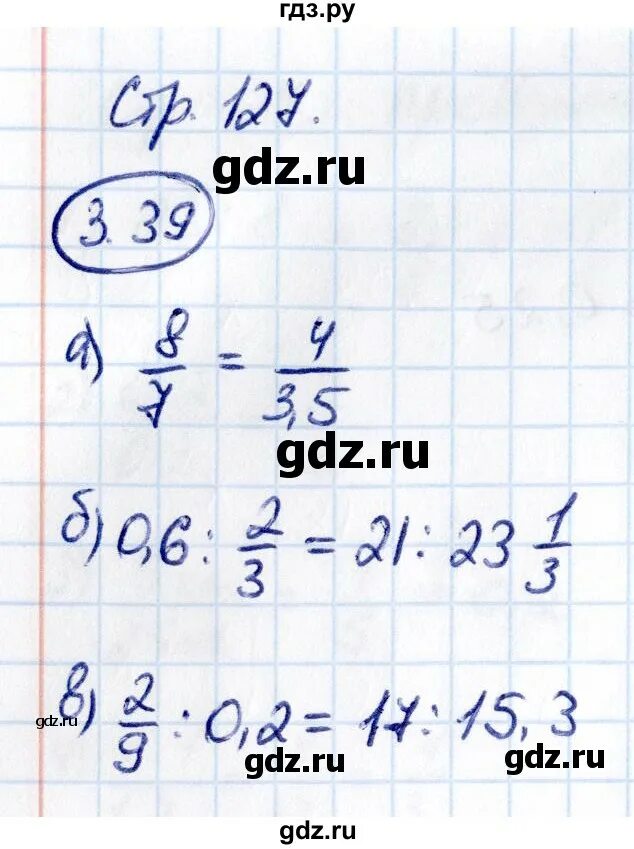 гдз.ру
Стр. 127.
gdz.ru
3.39
а) 8/7 = 4/3,5
gdz.ru
б) 0,6 : 2/3 = 21 : 23 1/3
в) 2/9 : 0,2 = 17 : 15,3
gdz.ru
gdz.ru
gdz.ru
gdz.ru